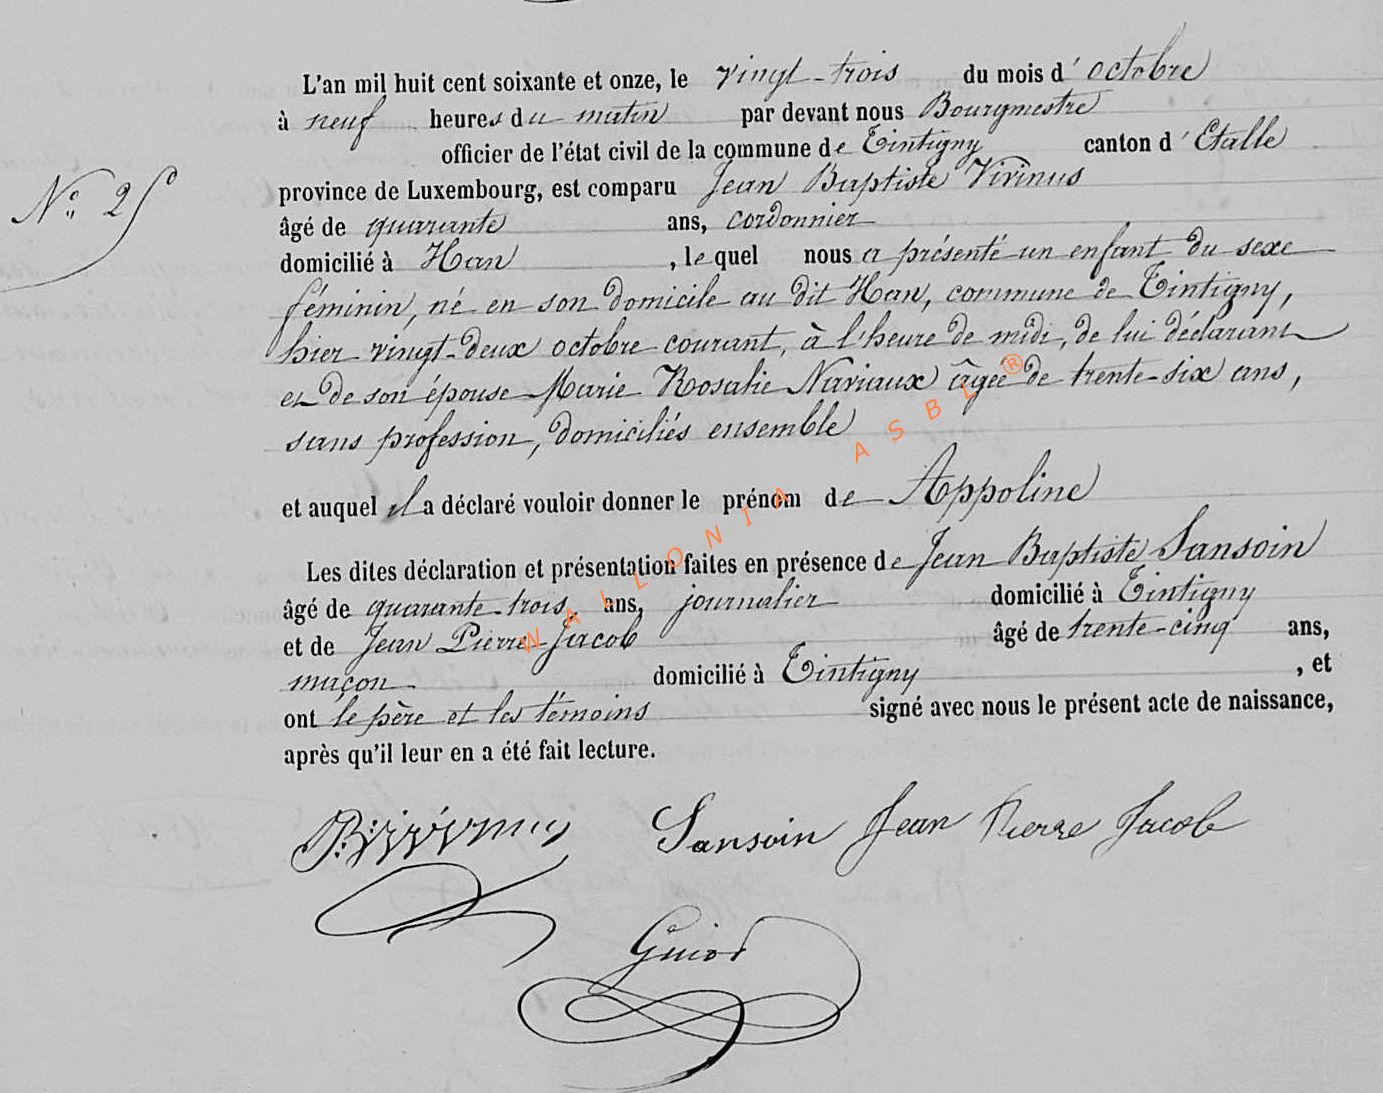 L'an mil huit cent soixante et onze, le vingt-trois du mois d'octobre
à neuf heures du matin par devant nous Bourgmestre
officier de l'état civil de la commune de Tintigny canton d'Etalle
Nº 25
province de Luxembourg, est comparu Jean Baptiste Virinus
âgé de quarante ans, cordonnier
domicilié à Han , lequel nous a présenté un enfant du sexe
féminin, né en son domicile au dit Han, commune de Tintigny,
hier vingt-deux octobre courant, à l'heure de midi, de lui déclarant
et de son épouse Marie Rosalie Naviaux âgée de trente-six ans,
sans profession, domiciliés ensemble
et auquel il a déclaré vouloir donner le prénom de Appoline
Les dites déclaration et présentation faites en présence de Jean Baptiste Sansoin
âgé de quarante-trois ans, journalier domicilié à Tintigny
et de Jean Pierre Jacob âgé de trente-cinq ans,
maçon domicilié à Tintigny , et
ont le père et les témoins signé avec nous le présent acte de naissance,
après qu'il leur en a été fait lecture.
Sansoin Jean Pierre Jacob
Guiot
WALLONIA ASBL ®